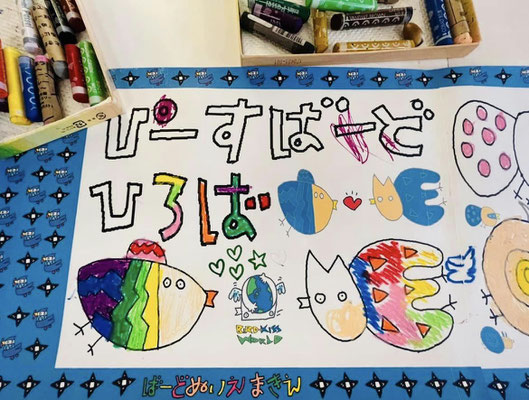 ぴーすばーど
ひろば
BIRD KISS
WORLD
ばーどぬりえまきえ